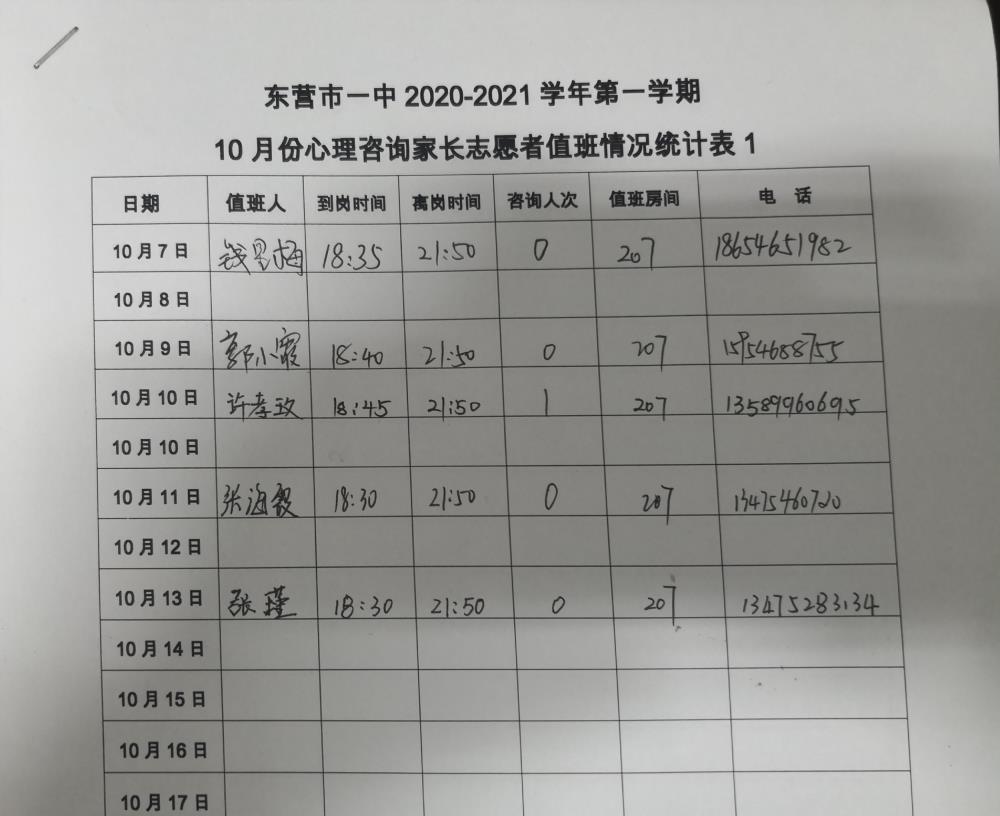 东营市一中 2020-2021 学年第一学期
10 月份心理咨询家长志愿者值班情况统计表 1
日期 值班人 到岗时间 离岗时间 咨询人次 值班房间 电 话
10 月 7 日 钱 梅 18:35 21:50 0 207 18654651982
10 月 8 日
10 月 9 日 郭小霞 18:40 21:50 0 207 15954688755
10 月 10 日 许孝玫 18:45 21:50 1 207 13589960695
10 月 10 日
10 月 11 日 张海霞 18:30 21:50 0 207 13475460720
10 月 12 日
10 月 13 日 张瑾 18:30 21:50 0 207 13475283134
10 月 14 日
10 月 15 日
10 月 16 日
10 月 17 日